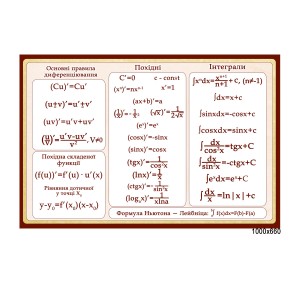 Основні правила
диференціювання
(Cu)′=Cu′
(u±v)′=u′±v′
(uv)′=u′v+uv′
(u/v)′=(u′v-uv′)/v², V≠0
Похідна складеної
функції
(f(u))′=f′(u)·u′(x)
Рівняння дотичної
у точці X₀
y-y₀=f′(x₀)(x-x₀)
Похідні
C′=0 c - const
(xⁿ)′=nxⁿ⁻¹ (x)′=1
(ax+b)′=a
(1/x)′=-1/x² (√x)′=1/2√x
(eˣ)′=eˣ
(cosx)′=-sinx
(sinx)′=cosx
(tgx)′=1/cos²x
(lnx)′=1/x
(ctgx)′=-1/sin²x
(logₐx)′=1/xlna
Інтеграли
∫xⁿdx=xⁿ⁺¹/n+1 + C, (n≠-1)
∫dx=x+c
∫sinxdx=-cosx+c
∫cosxdx=sinx+c
∫dx/cos²x=tgx+C
∫dx/sin²x=-ctgx+C
∫eˣdx=eˣ+C
∫dx/x=ln|x|+c
Формула Ньютона – Лейбніца: ∫f(x)dx=F(b)-F(a)
1000х660